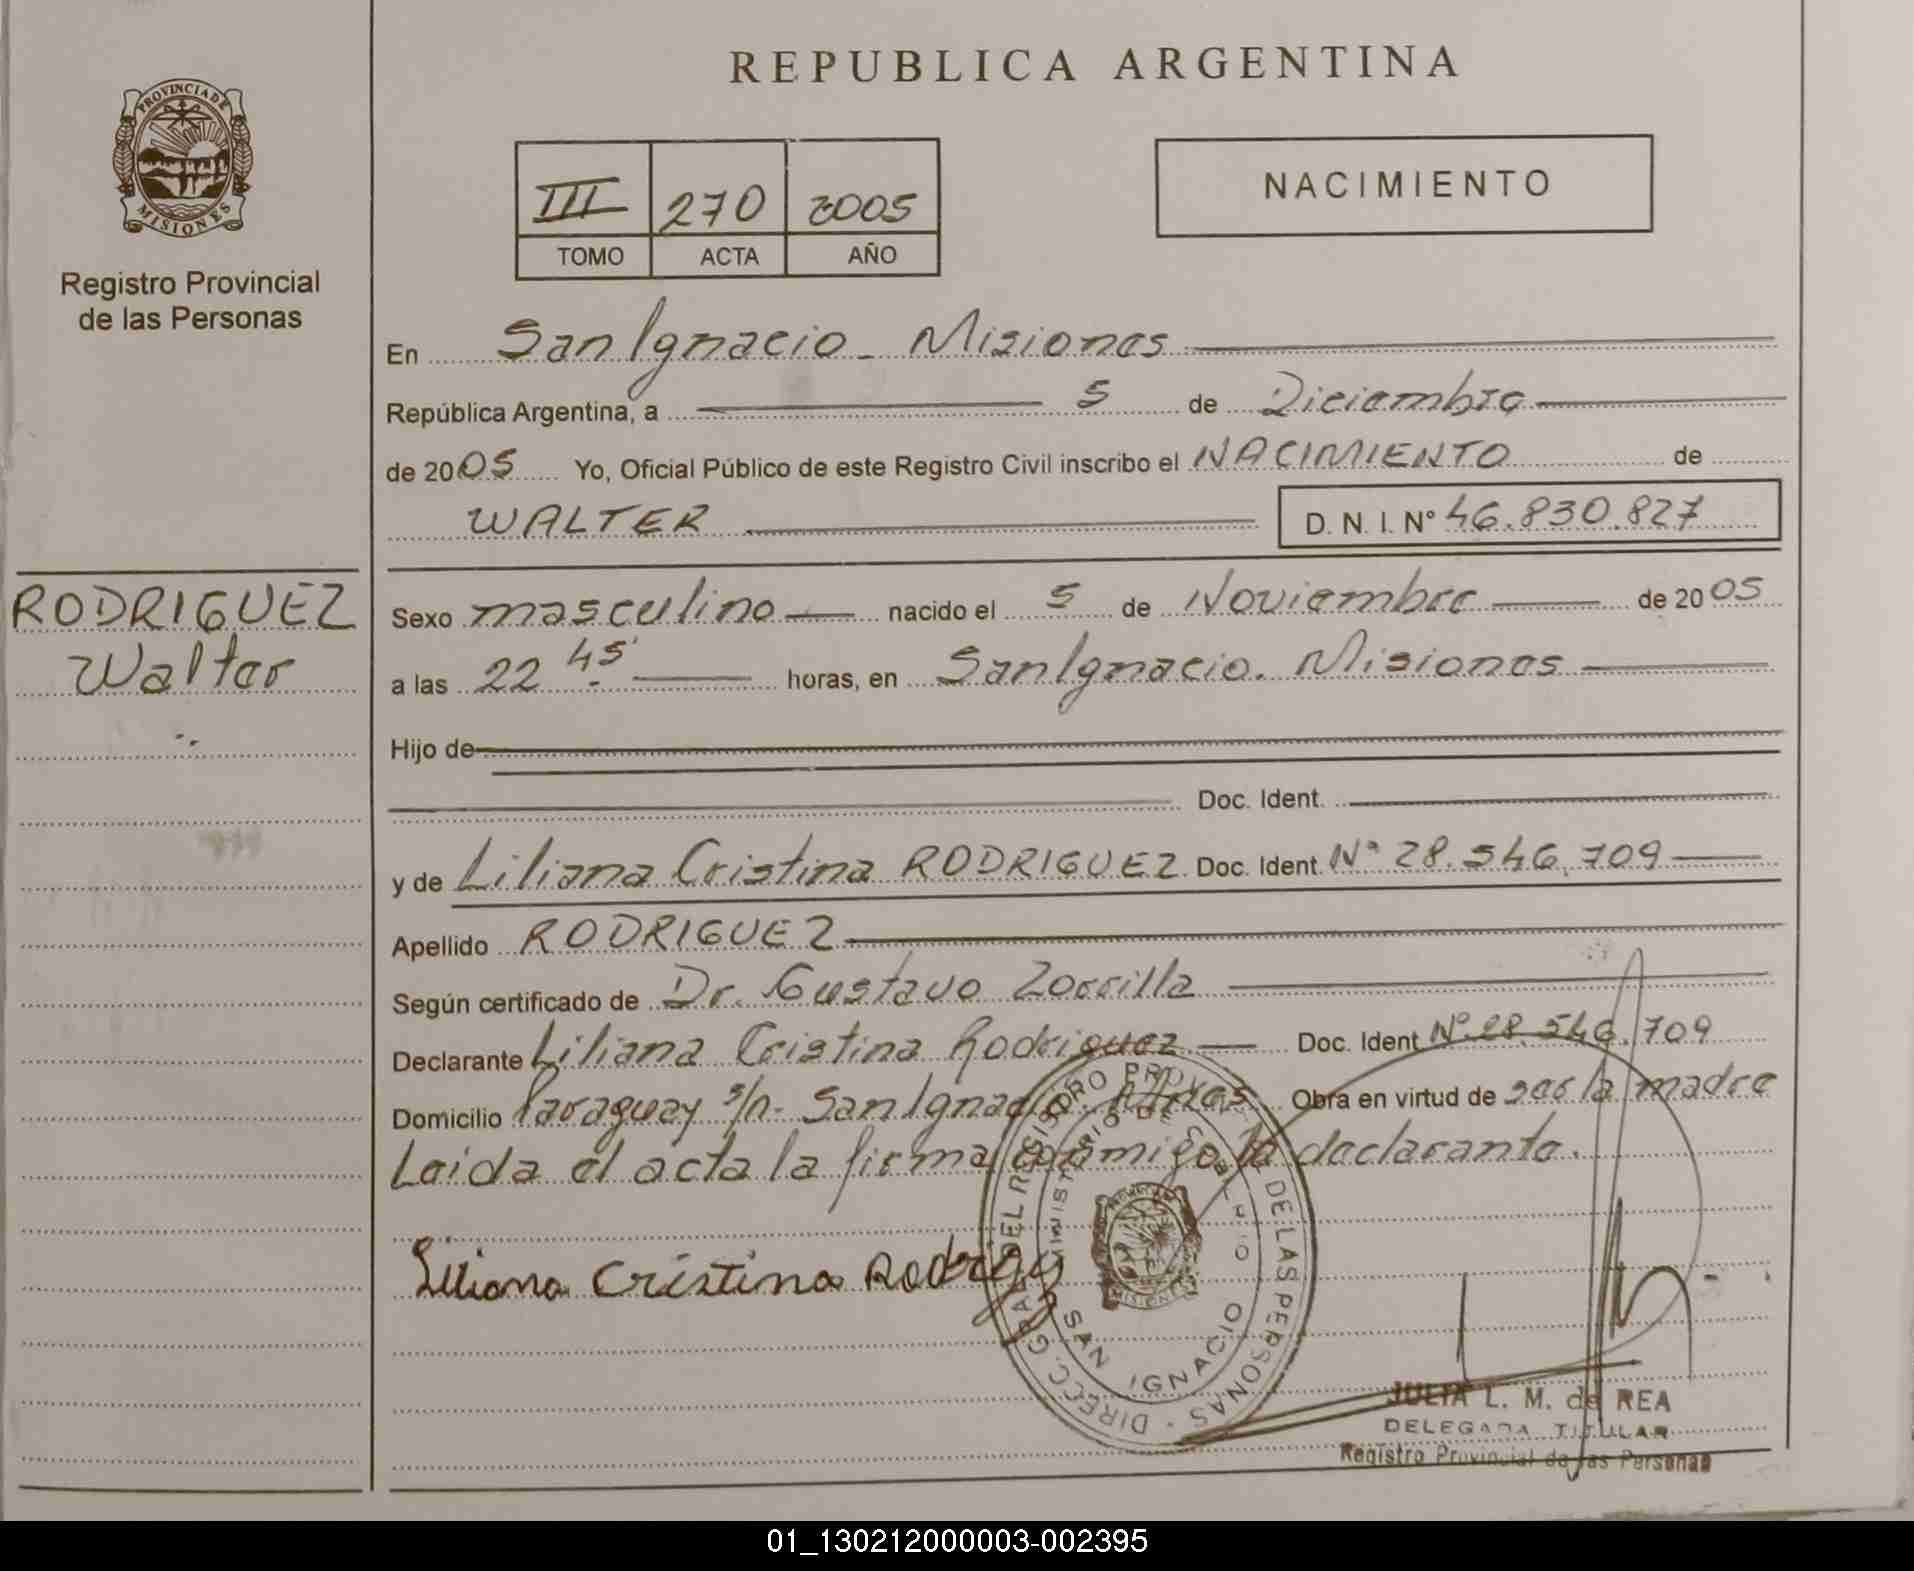 REPUBLICA ARGENTINA
PROVINCIA DE
MISIONES
Registro Provincial
de las Personas
III 270 2005
TOMO ACTA AÑO
NACIMIENTO
En San Ignacio - Misiones
República Argentina, a 5 de Diciembre
de 2005 Yo, Oficial Público de este Registro Civil inscribo el NACIMIENTO de
WALTER D. N. I. N° 46.830.827
RODRIGUEZ
Walter
Sexo masculino nacido el 5 de Noviembre de 2005
a las 22 45 horas, en San Ignacio. Misiones
Hijo de
Doc. Ident.
y de Liliana Cristina RODRIGUEZ Doc. Ident. N° 28.546.709
Apellido RODRIGUEZ
Según certificado de Dr. Gustavo Zorrilla
Declarante Liliana Cristina Rodriguez Doc. Ident N° 28.546.709
Domicilio Paraguay s/n. San Ignacio. Mnes Obra en virtud de ser la madre
Leida el acta la firma conmigo la declarante.
Liliana Cristina Rodriguez
DIRECC. GRAL. DEL REGISTRO PROV. DE LAS PERSONAS
MINISTERIO DE GOBIERNO
MISIONES
SAN IGNACIO
JULIA L. M. de REA
DELEGADA TITULAR
Registro Provincial de las Personas
01_130212000003-002395